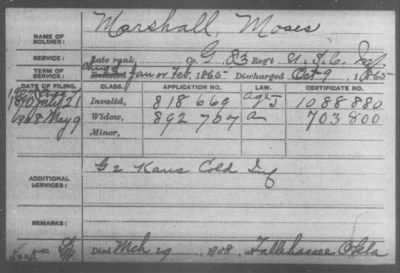 NAME OF SOLDIER: Marshall, Moses
SERVICE: Late rank, G, 83 Reg't U.S.C. Inf
TERM OF SERVICE: Enlisted Jan or Feb, 1865 Discharged Oct 9, 1865
DATE OF FILING. CLASS. APPLICATION NO. LAW. CERTIFICATE NO.
1890 July 21 Invalid, 818 669 1088 880
1908 May 9 Widow, 892 767 703 800
Minor,
ADDITIONAL SERVICES: G 2 Kans Cold Inf
REMARKS:
Died Mch 1908, at Okla